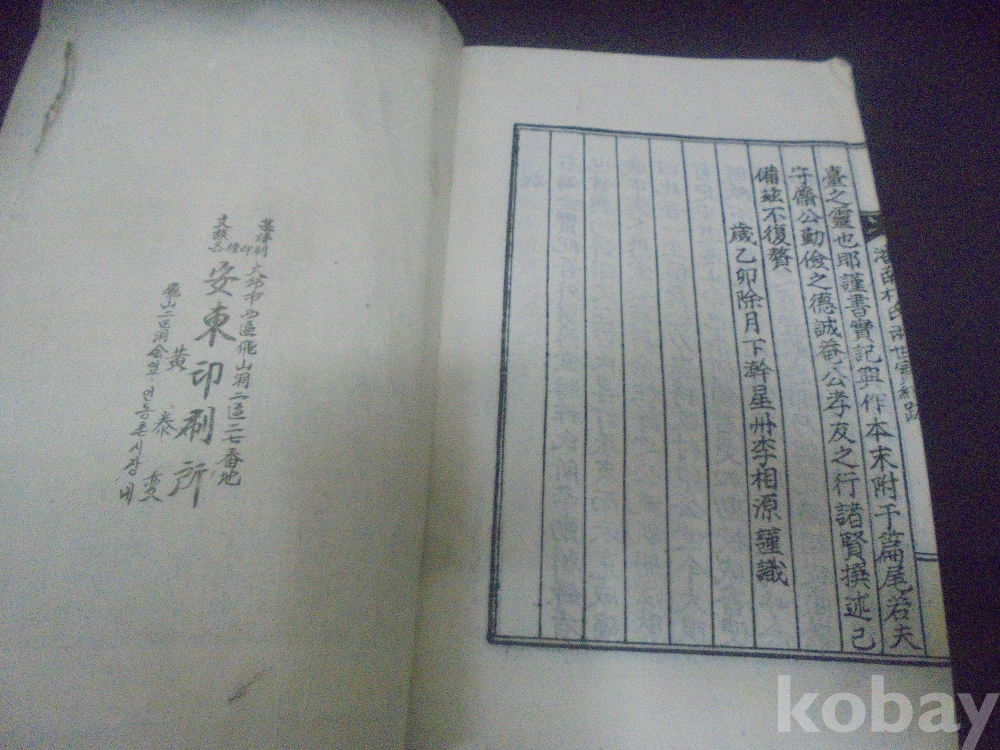 臺之靈也耶謹書實記與作本末附于篇尾若夫
守齋公勤儉之德誠菴公孝友之行諸賢撰述已
備玆不復贅
歲乙卯除月下澣星州李相源謹識
大邱市西區飛山洞二區二七番地
安東印刷所
黃泰
飛山二區洞會옆 연동촌시장내
kobay